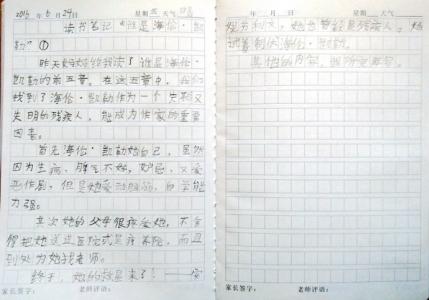 2015年5月29日 星期五 天气晴
读书笔记《谁是海伦·凯
勒》①
昨天妈妈给我读了谁是海伦·
凯勒的前五章。在这五章中,我们
找到了海伦·凯勒作为一个失聪又
失明的残疾人,能成为作家的重要
因素。
首先海伦·凯勒她自己,虽然
因为生病,脾气不好,妒忌,又爱
恶作剧,但是她爱动脑筋,自学能
力强。
其次她的父母很疼爱她,不舍
得把她送进医院或是疗养院,而且
到处为她找老师。
终于,她的救星来了!——安
家长签字: 老师评语:
年 月 日 星期 天气
她
海伦·凯勒。
家长签字: 老师评语: